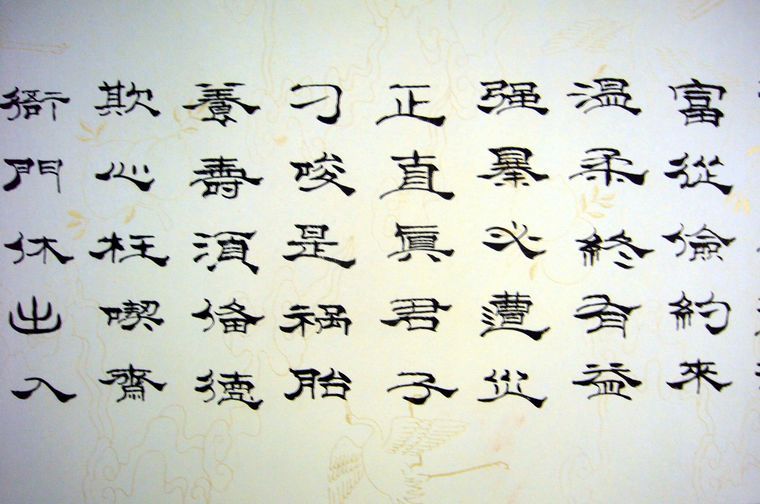 富從儉約來
溫柔終有益
强暴必遭災
正直眞君子
刁唆是禍胎
養壽須脩德
欺心枉喫齋
衙門休出入